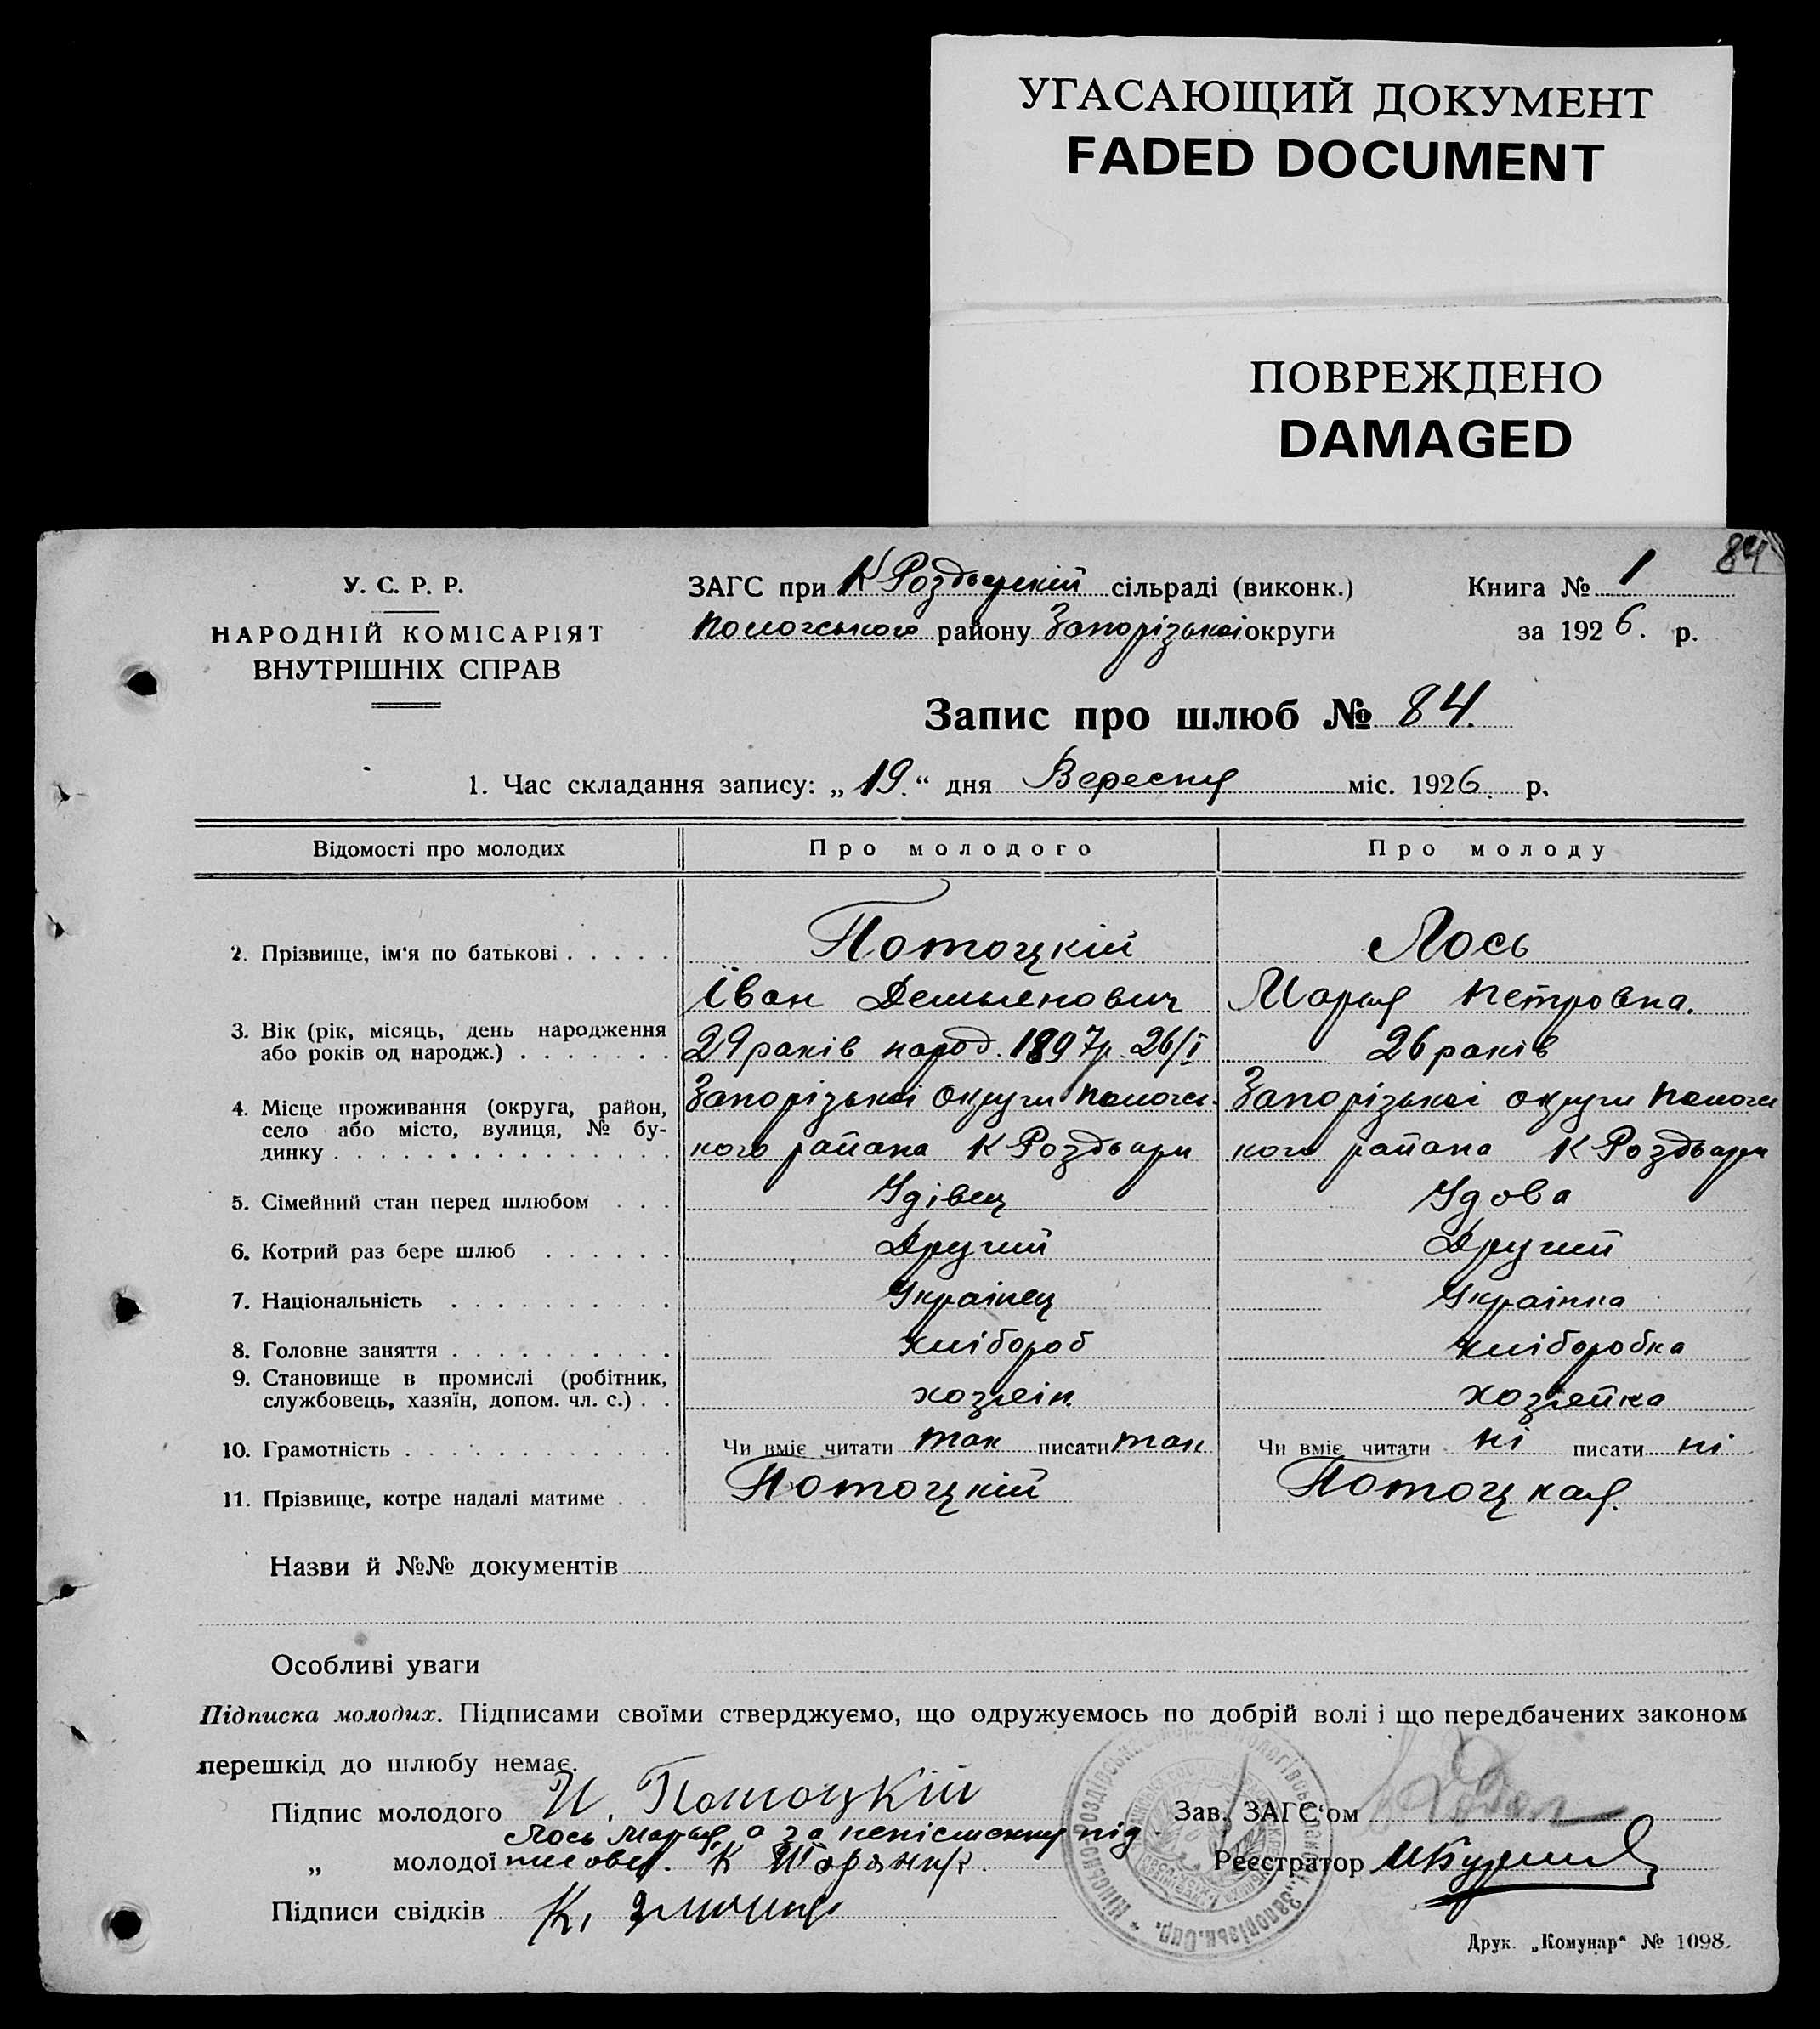 УГАСАЮЩИЙ ДОКУМЕНТ
FADED DOCUMENT
ПОВРЕЖДЕНО
DAMAGED
84
У. С. Р. Р.
НАРОДНІЙ КОМІСАРІЯТ
ВНУТРІШНІХ СПРАВ
ЗАГС при К Роздорській сільраді (виконк.)
Пологського району Запорізької округи
Книга № 1
за 1926. р.
Запис про шлюб № 84.
1. Час складання запису: „19.“ дня Вересня міс. 1926. р.
Відомості про молодих Про молодого Про молоду
2. Прізвище, ім‘я по батькові . . . . . Потоцкій Лось
Їван Демьянович Марія Петровна.
3. Вік (рік, місяць, день народження
або років од народж.) . . . . . . . 29 років народ. 1897р. 26/I 26 років
4. Місце проживання (округа, район,
село або місто, вулиця, № бу-
динку . . . . . . . . . . . . . . .
Запорізькоі округи Пологсь- Запорізькоі округи Пологсь
кого района К Роздори кого района К Роздори
5. Сімейний стан перед шлюбом . . . Удівец Удова
6. Котрий раз бере шлюб . . . . . . Другий Другий
7. Національність . . . . . . . . . . Українец Українка
8. Головне заняття . . . . . . . . . . хлібороб хліборобка
9. Становище в промислі (робітник,
службовець, хазяїн, допом. чл. с.) . . хозяін. хозяйка
10. Грамотність . . . . . . . . . . . . Чи вміє читати так писати так Чи вміє читати ні писати ні
11. Прізвище, котре надалі матиме . . Потоцкій Потоцкая.
Назви й №№ документів
Особливі уваги
Підписка молодих. Підписами своїми стверджуємо, що одружуємось по добрій волі і що передбачених законом
перешкід до шлюбу немає.
Підпис молодого И. Потоцкій
Зав. ЗАГС‘ом
Лось Марія а за неписьменну під
„ молодої писався. К
Реєстратор
Підписи свідків К.
Друк. „Комунар“ № 1098.